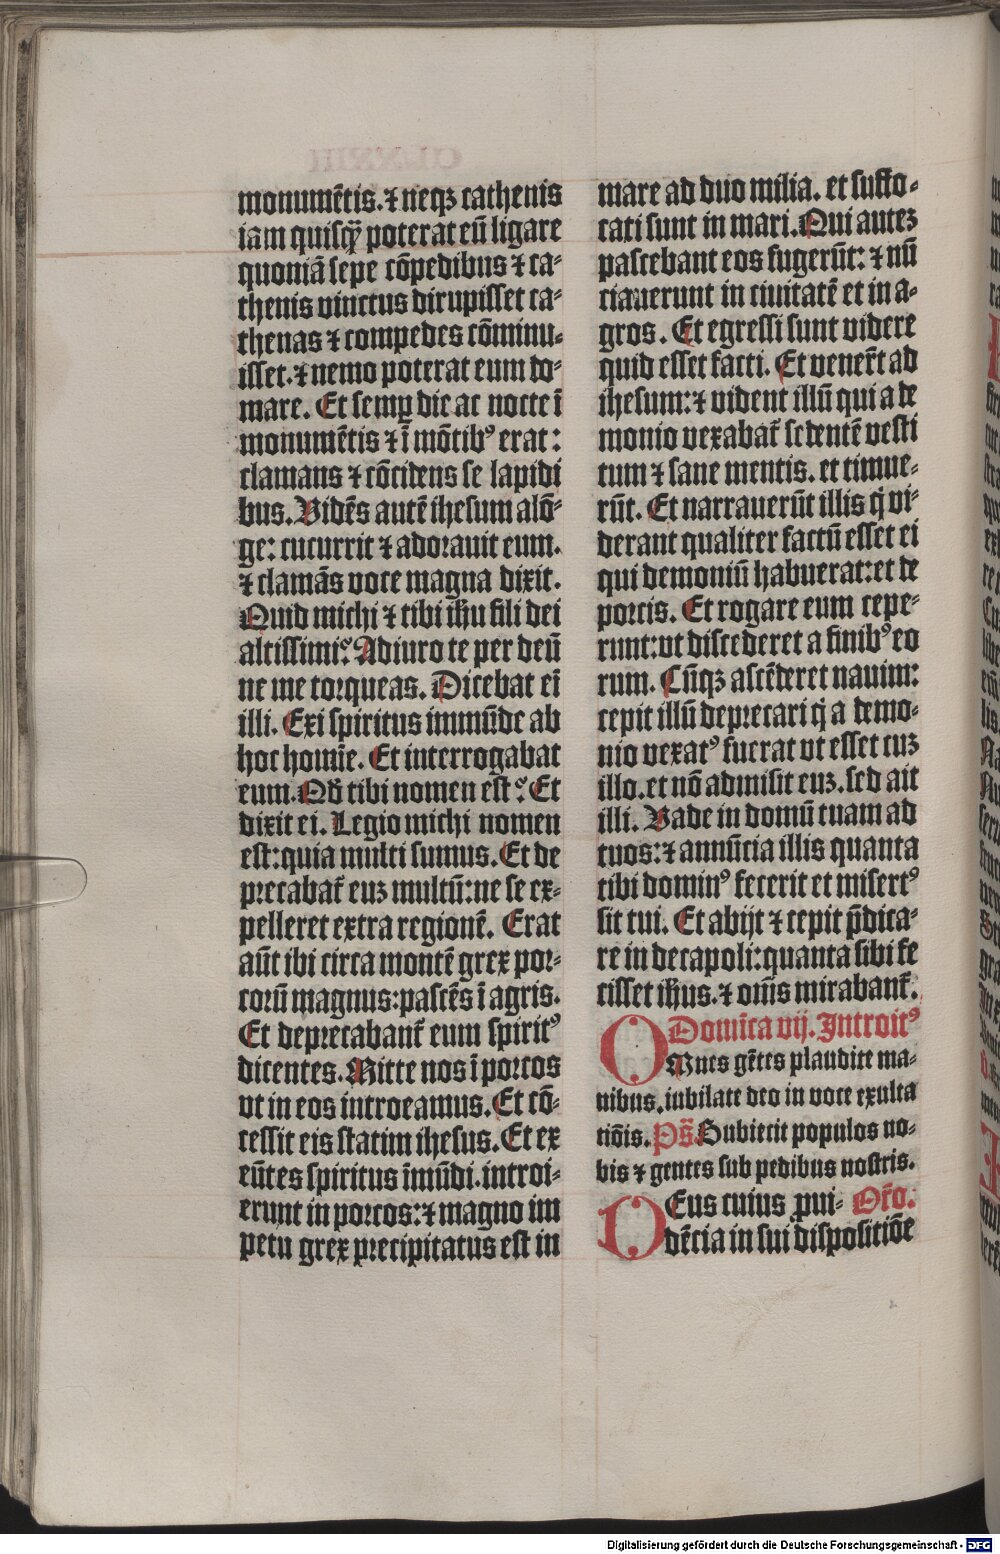 monumētis. ⁊ neqꝫ cathenis
iam quisq̄ꝫ poterat eū ligare
quoniā sepe cōpedibus ⁊ ca⸗
thenis vinctus dirupisset ca⸗
thenas ⁊ compedes cōminu⸗
isset. ⁊ nemo poterat eum do⸗
mare. Et semꝑ die ac nocte ī
monumētis ⁊ ī mōtibꝰ erat:
clamans ⁊ cōcidens se lapidi
bus. Vidēs autē ihesum alō⸗
ge: cucurrit ⁊ adorauit eum.
⁊ clamās voce magna dixit.
Quid michi ⁊ tibi ihu fili dei
altissimi? Adiuro te per deū
ne me torqueas. Dicebat eī
illi. Exi spiritus immūde ab
hoc homīe. Et interrogabat
eum. Qd tibi nomen est? Et
dixit ei. Legio michi nomen
est: quia multi sumus. Et de
precabat̄ euꝫ multū: ne se ex⸗
pelleret extra regionē. Erat
aūt ibi circa montē grex por⸗
corū magnus: pascēs ī agris.
Et deprecabant̄ eum spiritꝰ
dicentes. Mitte nos ī porcos
vt in eos introeamus. Et cō⸗
cessit eis statim ihesus. Et ex
eūtes spiritus īmūdi. introi⸗
erunt in porcos: ⁊ magno im
petu grex precipitatus est in
mare ad duo milia. et suffo⸗
cati sunt in mari. Qui auteꝫ
pascebant eos fugerūt: ⁊ nū
ciauerunt in ciuitatē et in a⸗
gros. Et egressi sunt videre
quid esset facti. Et venert̄ ad
ihesum: ⁊ vident illū qui a de
monio vexabat̄ sedentē vesti
tum ⁊ sane mentis. et timue⸗
rūt. Et narrauerūt illis q̄ vi⸗
derant qualiter factū esset ei
qui demoniū habuerat: et de
porcis. Et rogare eum cepe⸗
runt: vt discederet a finibꝰ eo
rum. Cūqꝫ ascēderet nauim:
cepit illū deprecari q̄ a demo⸗
nio vexatꝰ fuerat vt esset cuꝫ
illo. et nō admisit euꝫ. sed ait
illi. Vade in domū tuam ad
tuos: ⁊ annūcia illis quanta
tibi dominꝰ fecerit et misertꝰ
sit tui. Et abijt ⁊ cepit p̄dica⸗
re in decapoli: quanta sibi fe
cisset ihus. ⁊ om̄s mirabant̄.
Domīca vij. Introitꝰ
OMnes gētes plaudite ma⸗
nibus. iubilate deo in voce exulta
tiōis. Ps̄. Subiecit populos no⸗
bis ⁊ gentes sub pedibus nostris.
DEus cuius ꝓui⸗ Or̄o.
dēcia in sui dispositiōe
Digitalisierung gefördert durch die Deutsche Forschungsgemeinschaft - DFG